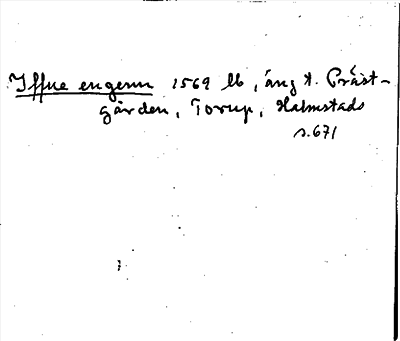 Iffue engenn 1569 lb, äng t. Präst-
gården, Torup, Halmstads
s. 671